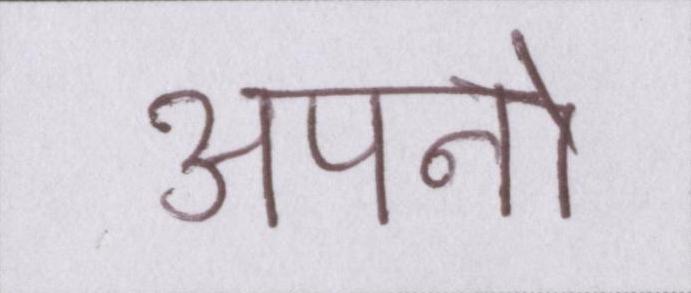 अपनो